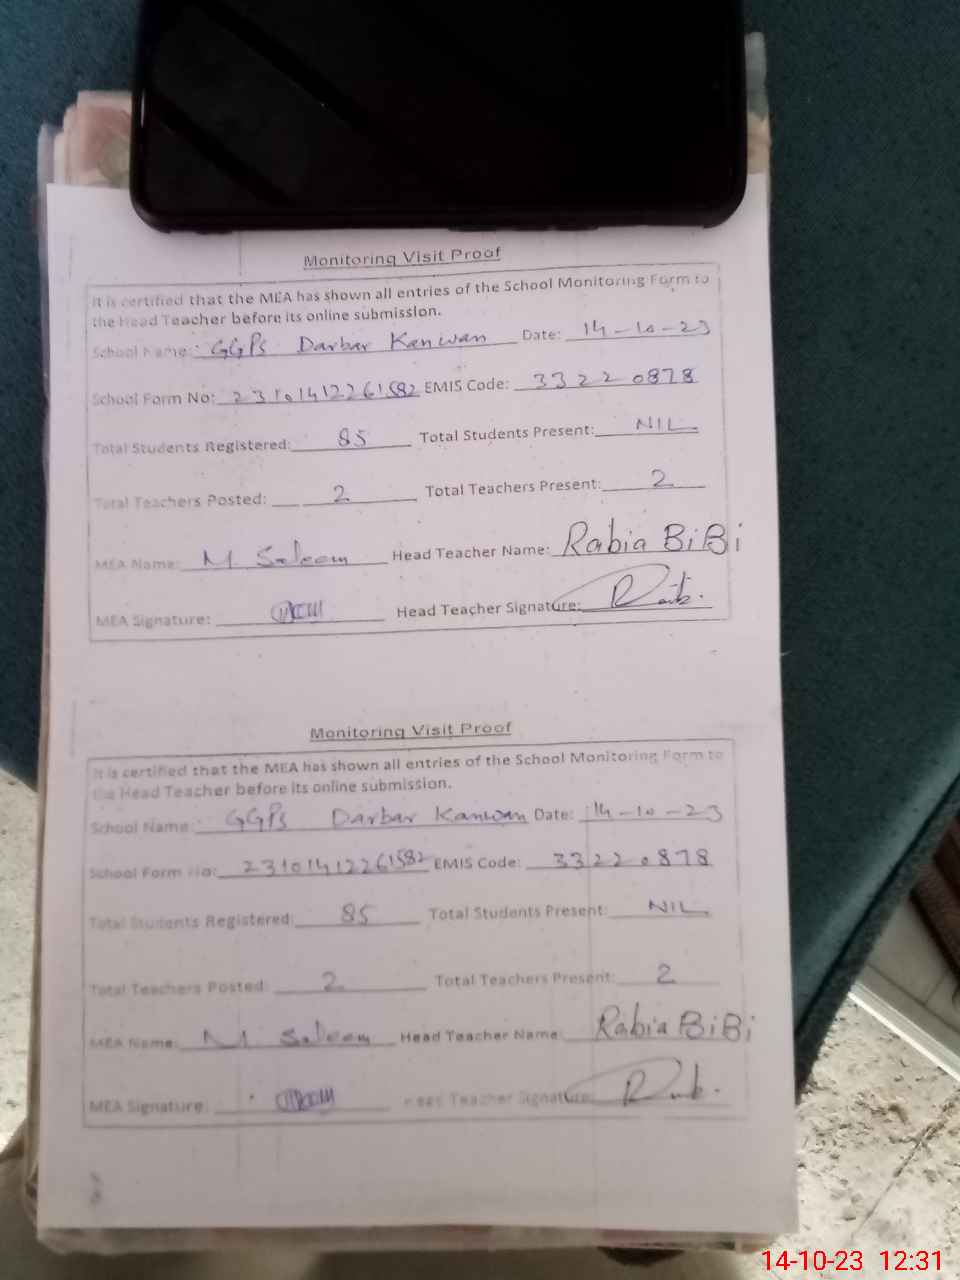 Monitoring Visit Proof
It is certified that the MEA has shown all entries of the School Monitoring Form to
the Head Teacher before its online submission.
School Name: GGPS Darbar Kanwan Date: 14-10-23
School Form No: 23101412261582 EMIS Code: 33220878
Total Students Registered: 85 Total Students Present: NIL
Total Teachers Posted: 2 Total Teachers Present: 2
MEA Name: M Saleem Head Teacher Name: Rabia BiBi
MEA Signature: Head Teacher Signature:
Monitoring Visit Proof
It is certified that the MEA has shown all entries of the School Monitoring Form to
the Head Teacher before its online submission.
School Name: GGPS Darbar Kanwan Date: 14-10-23
School Form No: 23101412261582 EMIS Code: 33220878
Total Students Registered: 85 Total Students Present: NIL
Total Teachers Posted: 2 Total Teachers Present: 2
MEA Name: M Saleem Head Teacher Name: Rabia BiBi
MEA Signature: Head Teacher Signature:
14-10-23 12:31